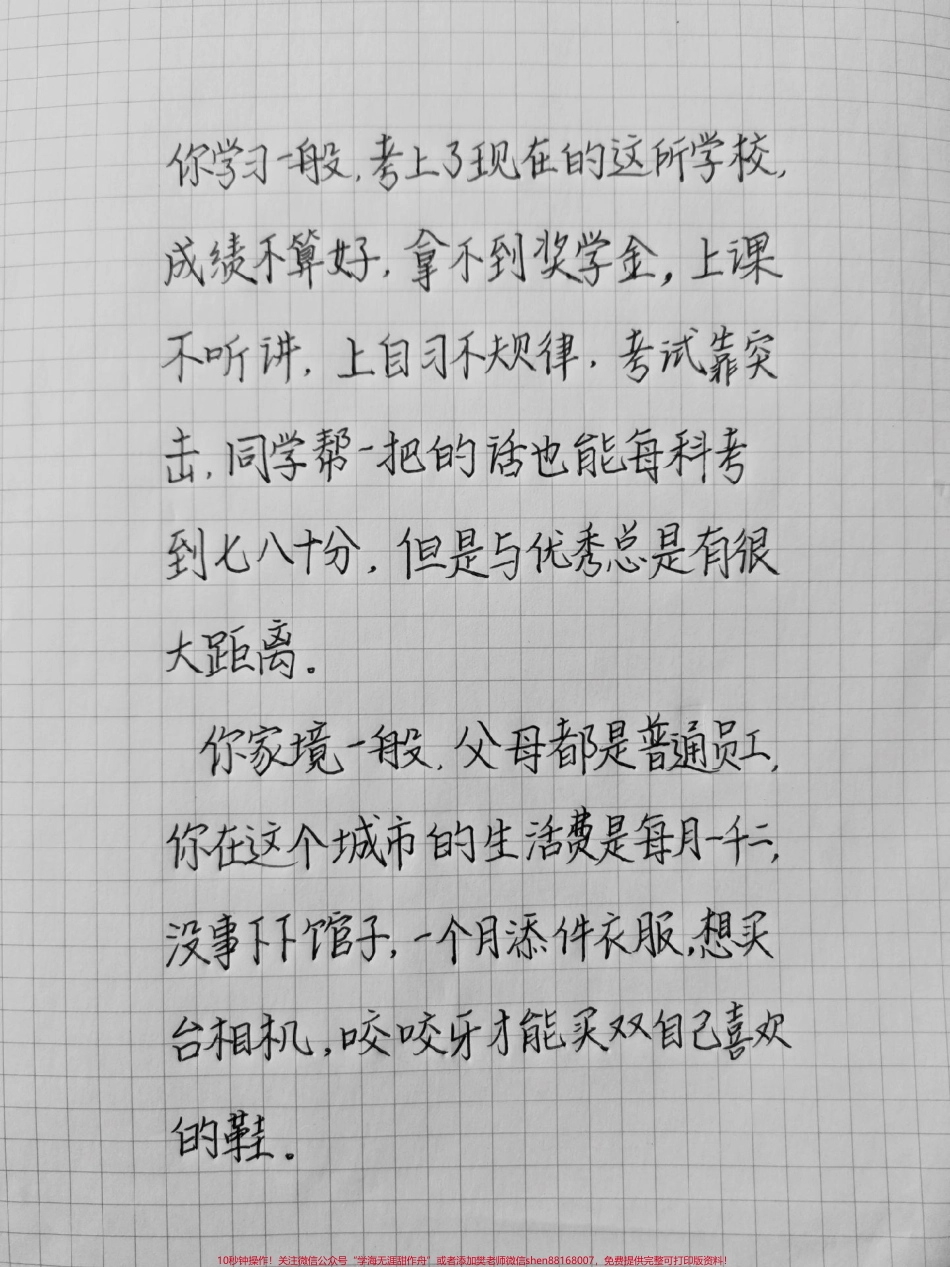 你学习一般,考上了现在的这所学校,
成绩不算好,拿不到奖学金,上课
不听讲,上自习不规律,考试靠突
击,同学帮一把的话也能每科考
到七八十分,但是与优秀总是有很
大距离。
你家境一般,父母都是普通员工,
你在这个城市的生活费是每月一千二,
没事下下馆子,一个月添件衣服,想买
台相机,咬咬牙才能买双自己喜欢
的鞋。
10秒钟操作!关注微信公众号“学海无涯甜作舟”或者添加樊老师微信shen88168007,免费提供完整可打印版资料!